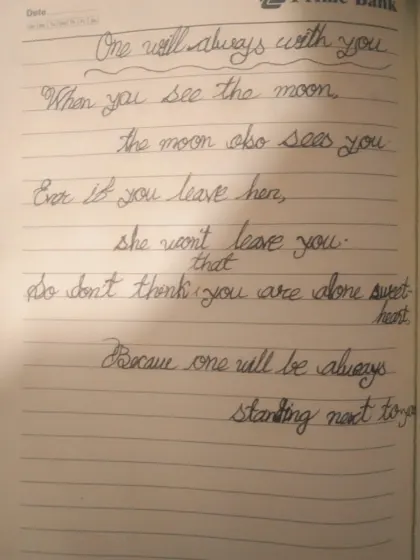 Date
Prime Bank
One will always with you
When you see the moon,
the moon also sees you
Ever if you leave her,
she won't leave you.
that
So don't think you are alone sweet-
heart,
Becaue one will be always
standing next to you